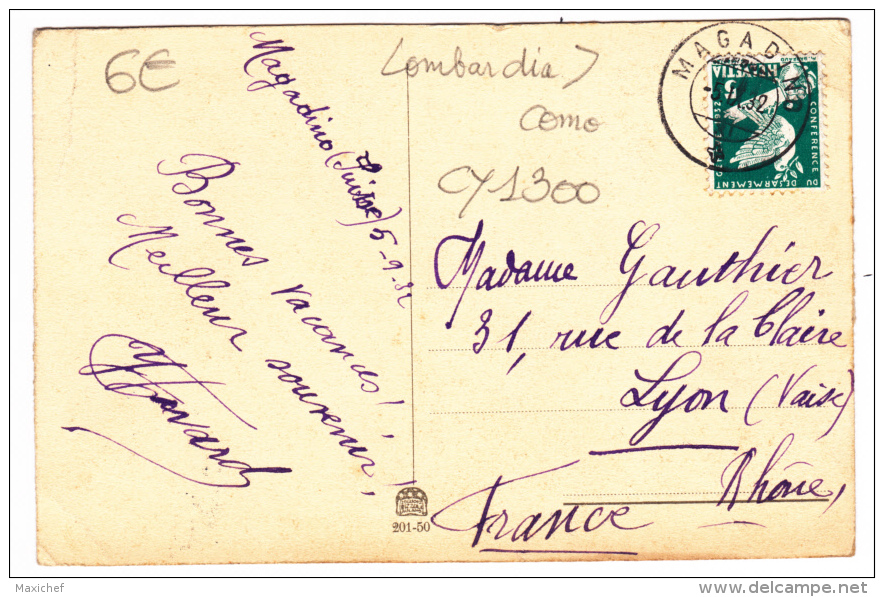 6€
Lombardia >
Como
CY1300
MAGADINO
-5.IX.32.
HELVETIA
CONFERENCE DU
DESARMEMENT
1932
Magadino (Suisse) 5-9-32
Bonnes vacances!
Meilleur souvenir,
Madame Gauthier
31, rue de la Claire
Lyon (Vaise)
Rhône,
France
201-50
Maxichef
www.delcampe.net